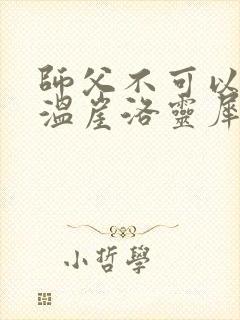 師父不可以
溫崖洛靈犀
小哲學